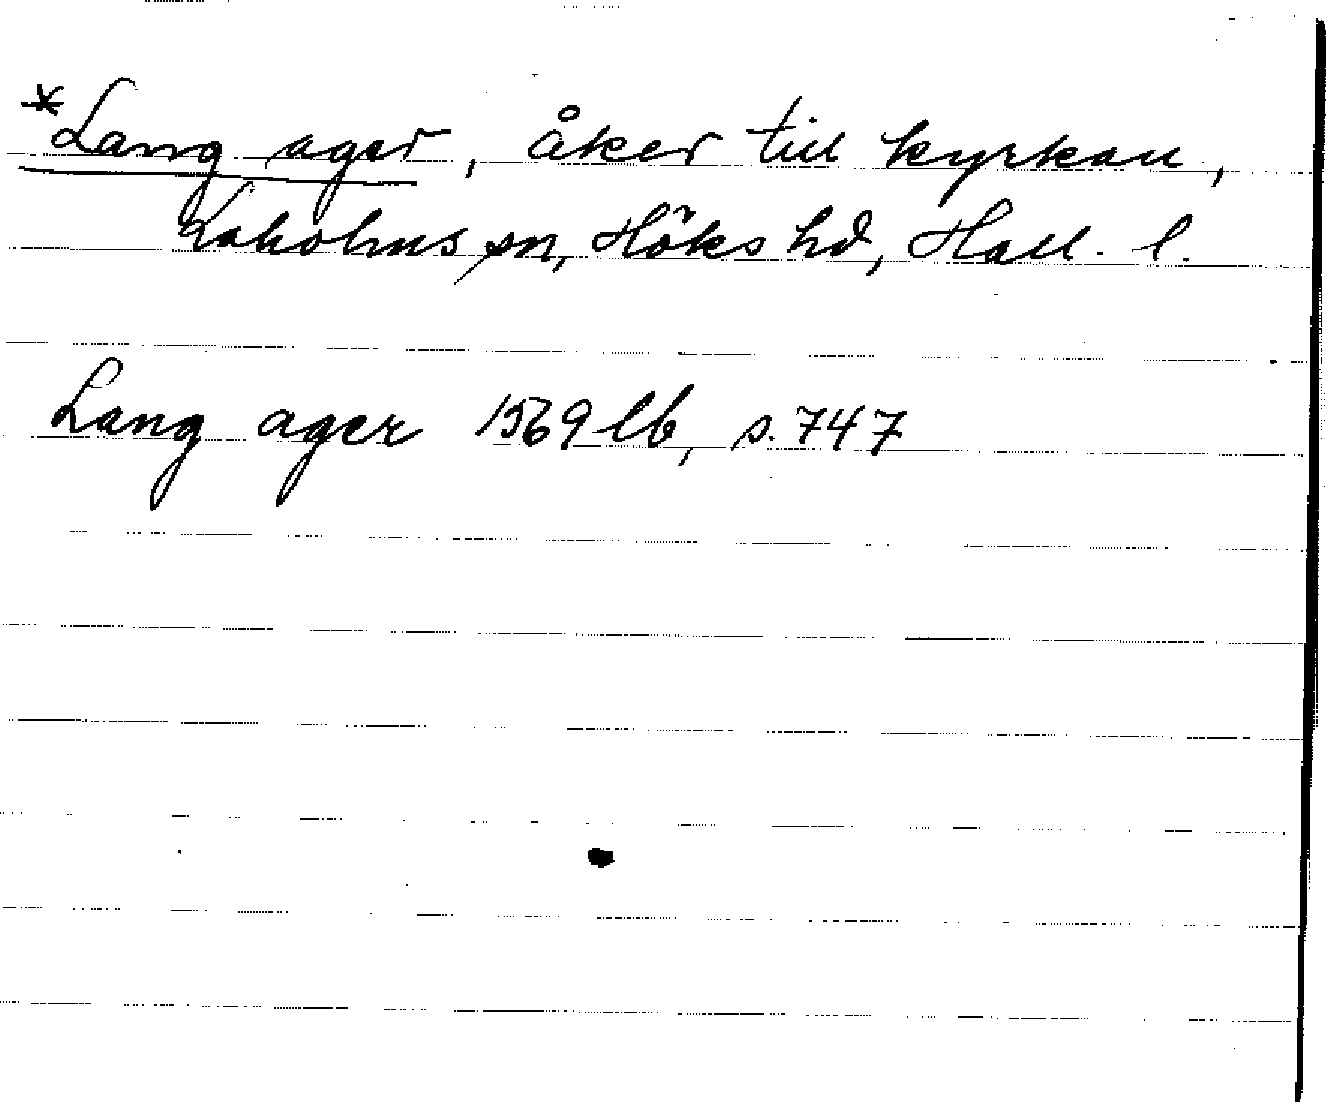 *Lang ager, åker till kyrkan,
Laholms sn, Höks hd, Hall. l.
Lang ager 1569 lb, s. 747